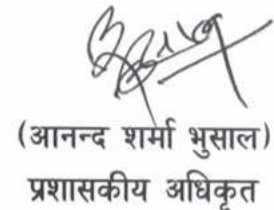 (आनन्द शर्मा भुसाल)
प्रशासकीय अधिकृत